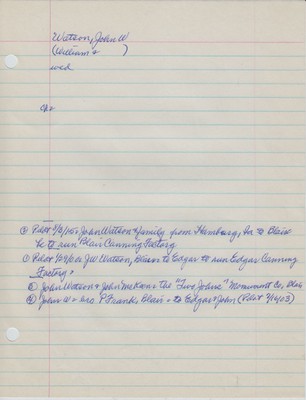 Watson, John W
(William &      )
wed
ch:
Pilot John Watson & family from Hamburg, Ia to Blair
he to run Blair Canning Factory
Pilot JW Watson, Blair to Edgar to run Edgar Canning
Factory
John Watson & John the "Two Johns" Monument Co, Blair
John W & bro P Frank, Blair to Edgar & John (Pilot